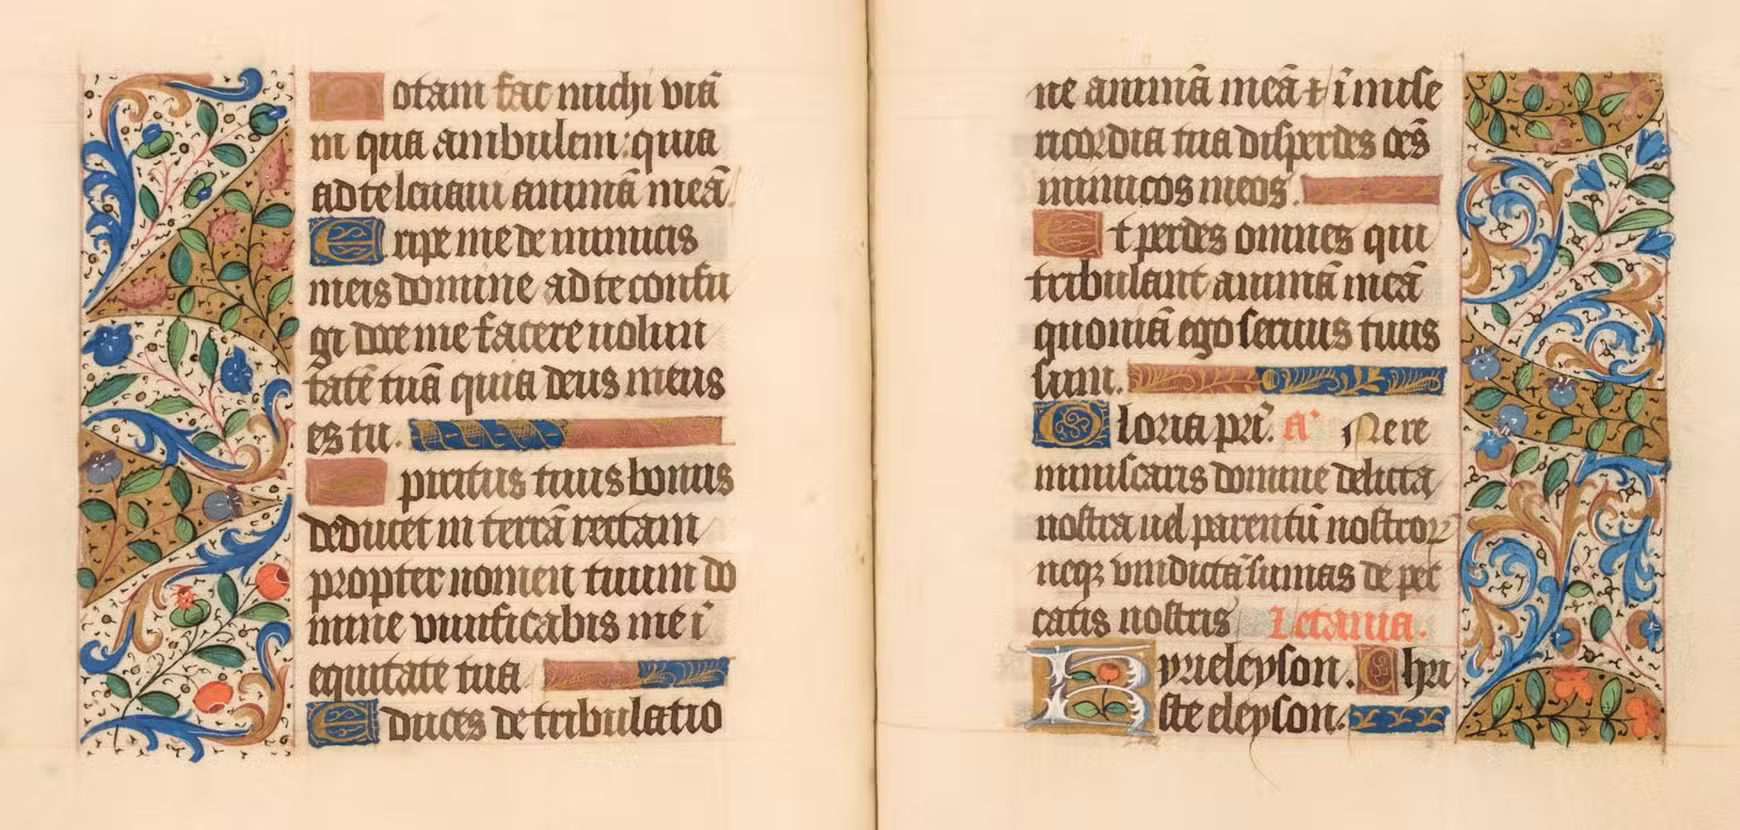 Notam fac michi viã
in qua ambulem: quia
ad te levavi animã meã.
Eripe me de inimicis
meis domine ad te confu
gi doce me facere volun
tatẽ tuã quia deus meus
es tu.
Spiritus tuus bonus
deducet in terrã rectam
propter nomen tuum do
mine vivificabis me ĩ
equitate tua
Educes de tribulatio
ne animã meã ⁊ ĩ mise
ricordia tua disperdes oẽs
inimicos meos.
Et perdes omnes qui
tribulant animã meã
quoniã ego servus tuus
sum.
Gloria pri̅. a Ne re
miniscaris domine delicta
nostra vel parentũ nostroꝝ
neqꝫ vindictã sumas de pec
catis nostris Letania.
Kyrieleyson. Chri
ste eleyson.